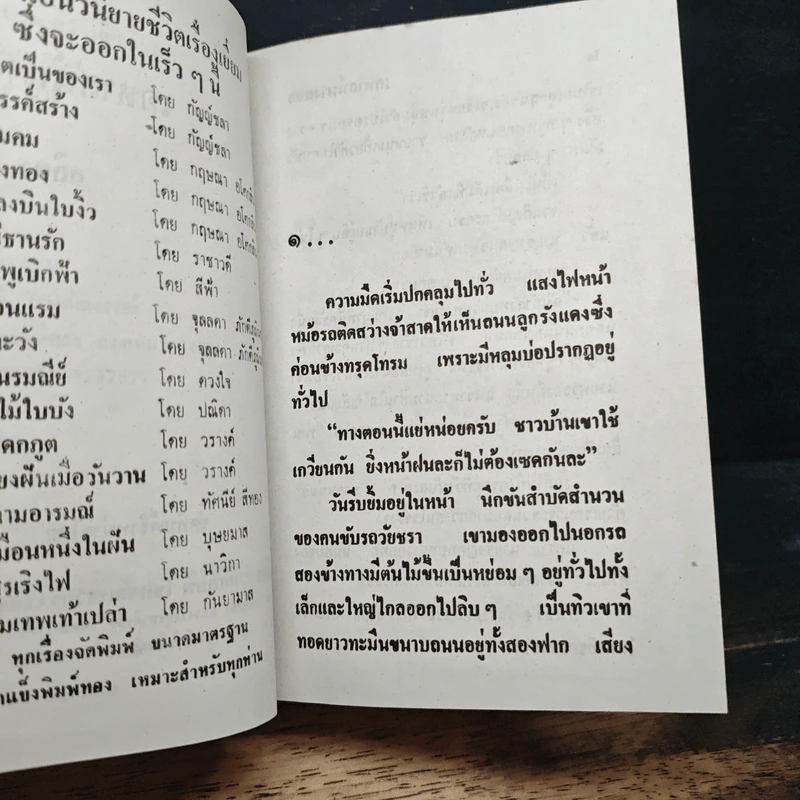 นวนิยายชีวิตเรื่องเยี่ยม
ซึ่งจะออกในเร็ว ๆ นี้
เป็นของเรา โดย กัญญ์ชลา
สร้าง โดย กัญญ์ชลา
คม โดย กฤษณา
ทอง โดย กฤษณา
บินใบงิ้ว โดย กฤษณา
ชานรัก โดย ราชาวดี
พูเบิกฟ้า โดย สีฟ้า
นแรม โดย จุลลดา
ะวัง โดย จุลลดา
นรมณีย์ โดย ดวงใจ
ไม้ใบบัง โดย ปณิดา
ดกภูต โดย วรางค์
ยงฝันเมื่อวันวาน โดย วรางค์
ามอารมณ์ โดย ทัศนีย์ สีทอง
มือนหนึ่งในฝัน โดย บุษยมาส
รเริงไฟ โดย นาวิกา
มเทพเท้าเปล่า โดย กันยามาส
ทุกเรื่องจัดพิมพ์ ขนาดมาตรฐาน
แข็งพิมพ์ทอง เหมาะสำหรับทุกท่าน
๑...
ความมืดเริ่มปกคลุมไปทั่ว แสงไฟหน้า
หม้อรถติดสว่างจ้าสาดให้เห็นถนนลูกรังแดงซึ่ง
ค่อนข้างทรุดโทรม เพราะมีหลุมบ่อปรากฏอยู่
ทั่วไป
“ทางตอนนี้แย่หน่อยครับ ชาวบ้านเขาใช้
เกวียนกัน ยิ่งหน้าฝนละก็ไม่ต้องเซดกันละ”
วันรีบยิ้มอยู่ในหน้า นึกขันสำบัดสำนวน
ของคนขับรถวัยชรา เขามองออกไปนอกรถ
สองข้างทางมีต้นไม้ขึ้นเป็นหย่อม ๆ อยู่ทั่วไปทั้ง
เล็กและใหญ่ไกลออกไปลิบ ๆ เป็นทิวเขาที่
ทอดยาวทะมึนขนาบถนนอยู่ทั้งสองฟาก เสียง